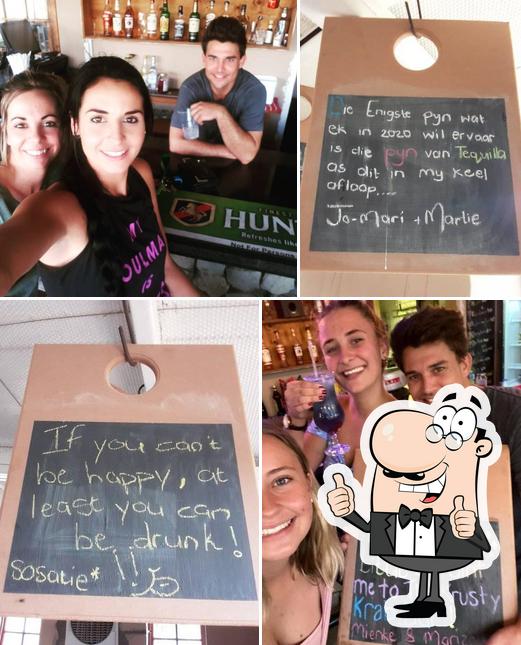 MY
OULMA
IS
FINEST
HUN
Refreshes like
Not For Persons
Die Enigste pyn wat
ek in 2020 wil ervaar
is die pyn van Tequilla
as dit in my keel
afloop....
Jo-Mari + Marlie
If you can't
be happy, at
least you can
be drunk!
sosatie* !!
me to rusty
Kra
Mienke & Man